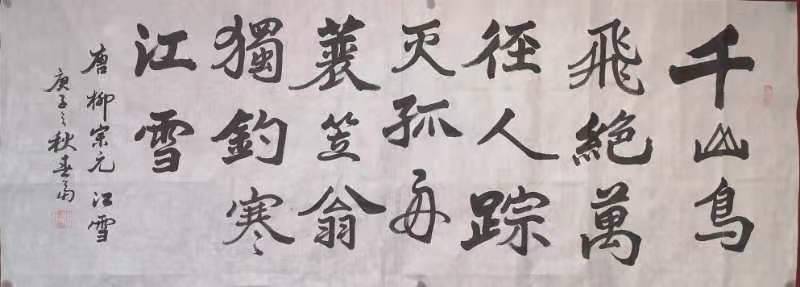 千山鳥
飛絶萬
径人踪
灭孤舟
蓑笠翁
獨釣寒
江雪
唐柳宗元江雪
庚子之秋春雨